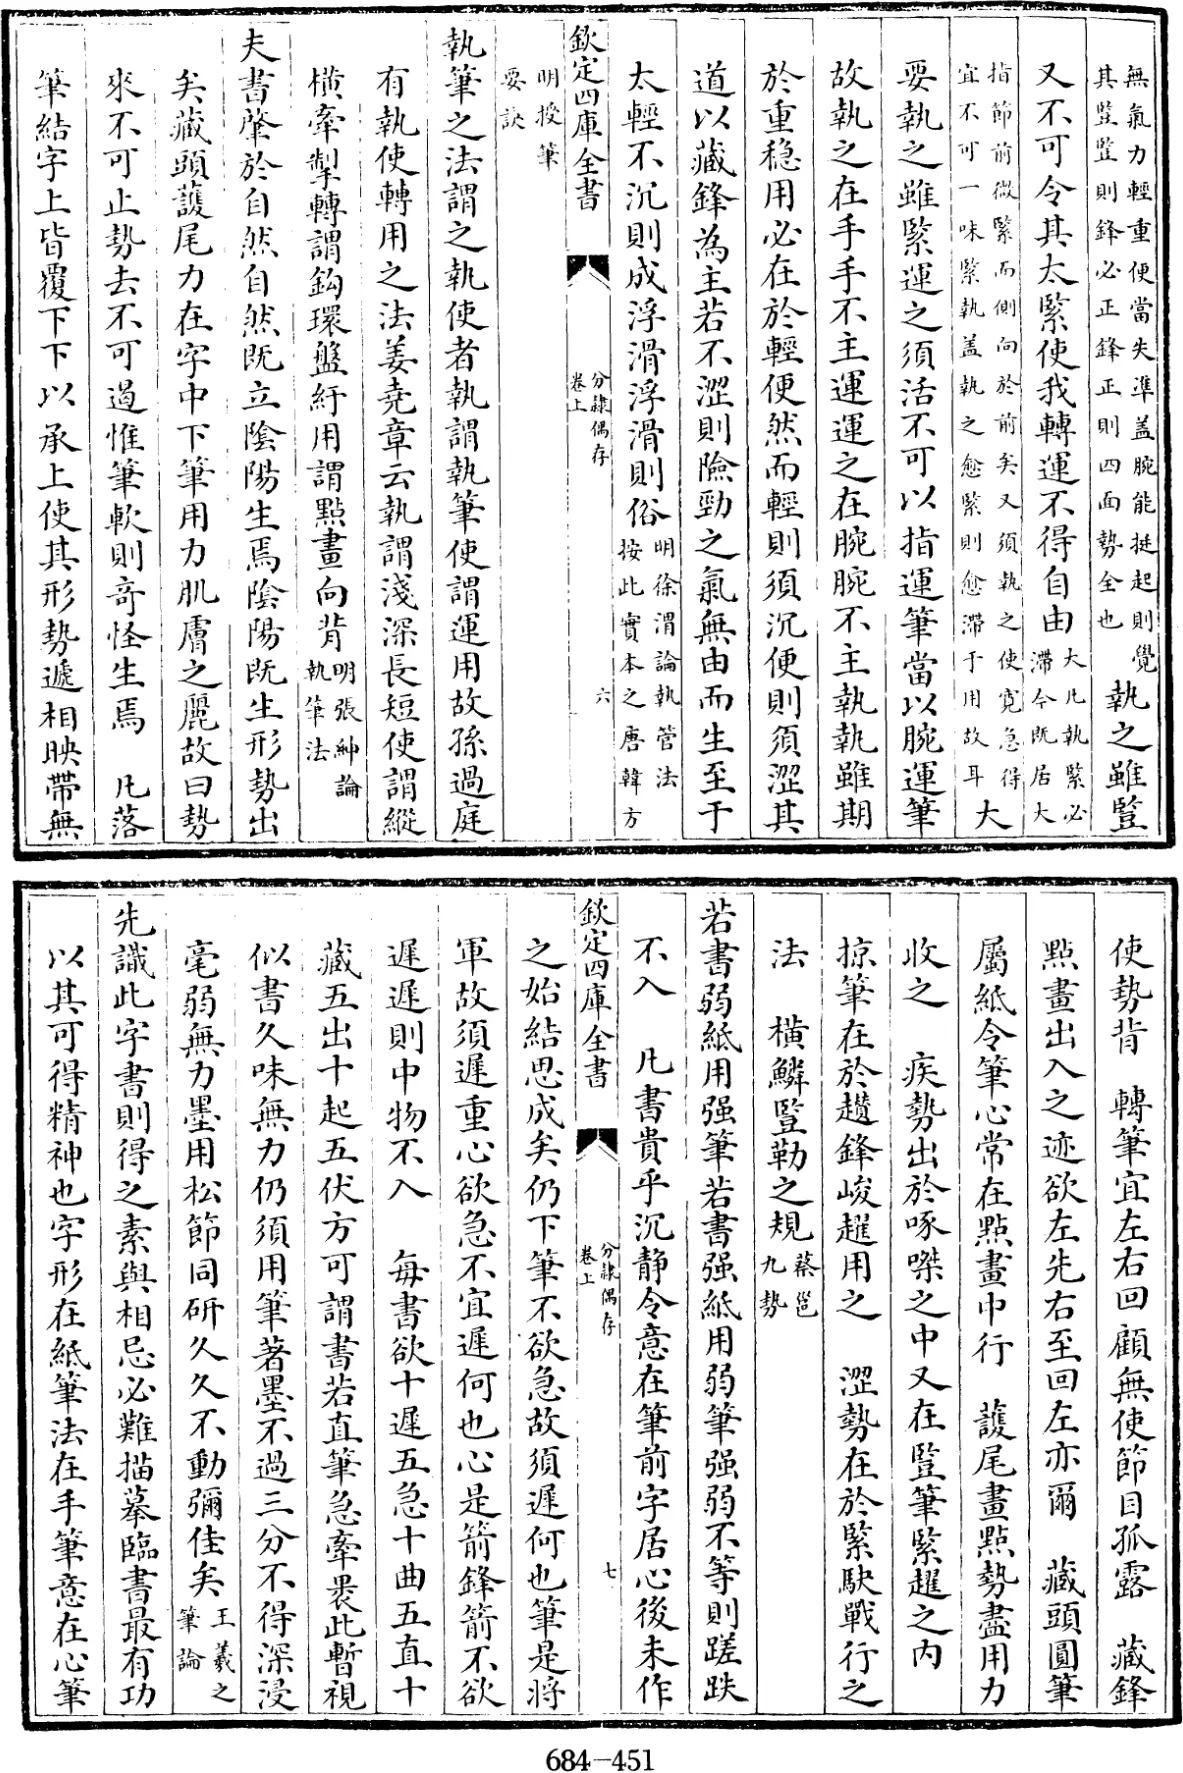 無氣力輕重便當失準盖腕能挺起則覺
其豎豎則鋒必正鋒正則四面勢全也
執之雖豎
又不可令其太緊使我轉運不得自由
大凡執緊必
滯今既居大
指節前微緊而側向於前矣又須執之使寬急得
宜不可一味緊執盖執之愈緊則愈滯于用故耳
大
要執之雖緊運之須活不可以指運筆當以腕運筆
故執之在手手不主運運之在腕腕不主執執雖期
於重穏用必在於輕便然而輕則須沉便則須澀其
道以藏鋒為主若不澀則險勁之氣無由而生至于
太輕不沉則成浮滑浮滑則俗
明徐渭論執管法
按此實本之唐韓方
欽定四庫全書
分隸偶存
卷上
六
明授筆
要訣
執筆之法謂之執使者執謂執筆使謂運用故孫過庭
有執使轉用之法姜堯章云執謂淺深長短使謂縱
橫牽掣轉謂鈎環盤紆用謂點畫向背
明張紳論
執筆法
夫書肇於自然自然既立陰陽生焉陰陽既生形勢出
矣藏頭護尾力在字中下筆用力肌膚之麗故曰勢
來不可止勢去不可遏惟筆軟則奇怪生焉 凡落
筆結字上皆覆下下以承上使其形勢遞相映帶無
使勢背 轉筆宜左右回顧無使節目孤露 藏鋒
點畫出入之迹欲左先右至回左亦爾 藏頭圓筆
屬紙令筆心常在點畫中行 護尾畫點勢盡用力
收之 疾勢出於啄磔之中又在豎筆緊趯之內
掠筆在於趲鋒峻趯用之 澀勢在於緊駃戰行之
法 橫鱗豎勒之規
蔡邕
九勢
若書弱紙用强筆若書强紙用弱筆强弱不等則蹉跌
不入 凡書貴乎沉静令意在筆前字居心後未作
欽定四庫全書
分隸偶存
卷上
七
之始結思成矣仍下筆不欲急故須遲何也筆是將
軍故須遲重心欲急不宜遲何也心是箭鋒箭不欲
遲遲則中物不入 每書欲十遲五急十曲五直十
藏五出十起五伏方可謂書若直筆急牽裹此暫視
似書久味無力仍須用筆著墨不過三分不得深浸
毫弱無力墨用松節同研久久不動彌佳矣
王羲之
筆論
先識此字書則得之素與相忌必難描摹臨書最有功
以其可得精神也字形在紙筆法在手筆意在心筆
684-451